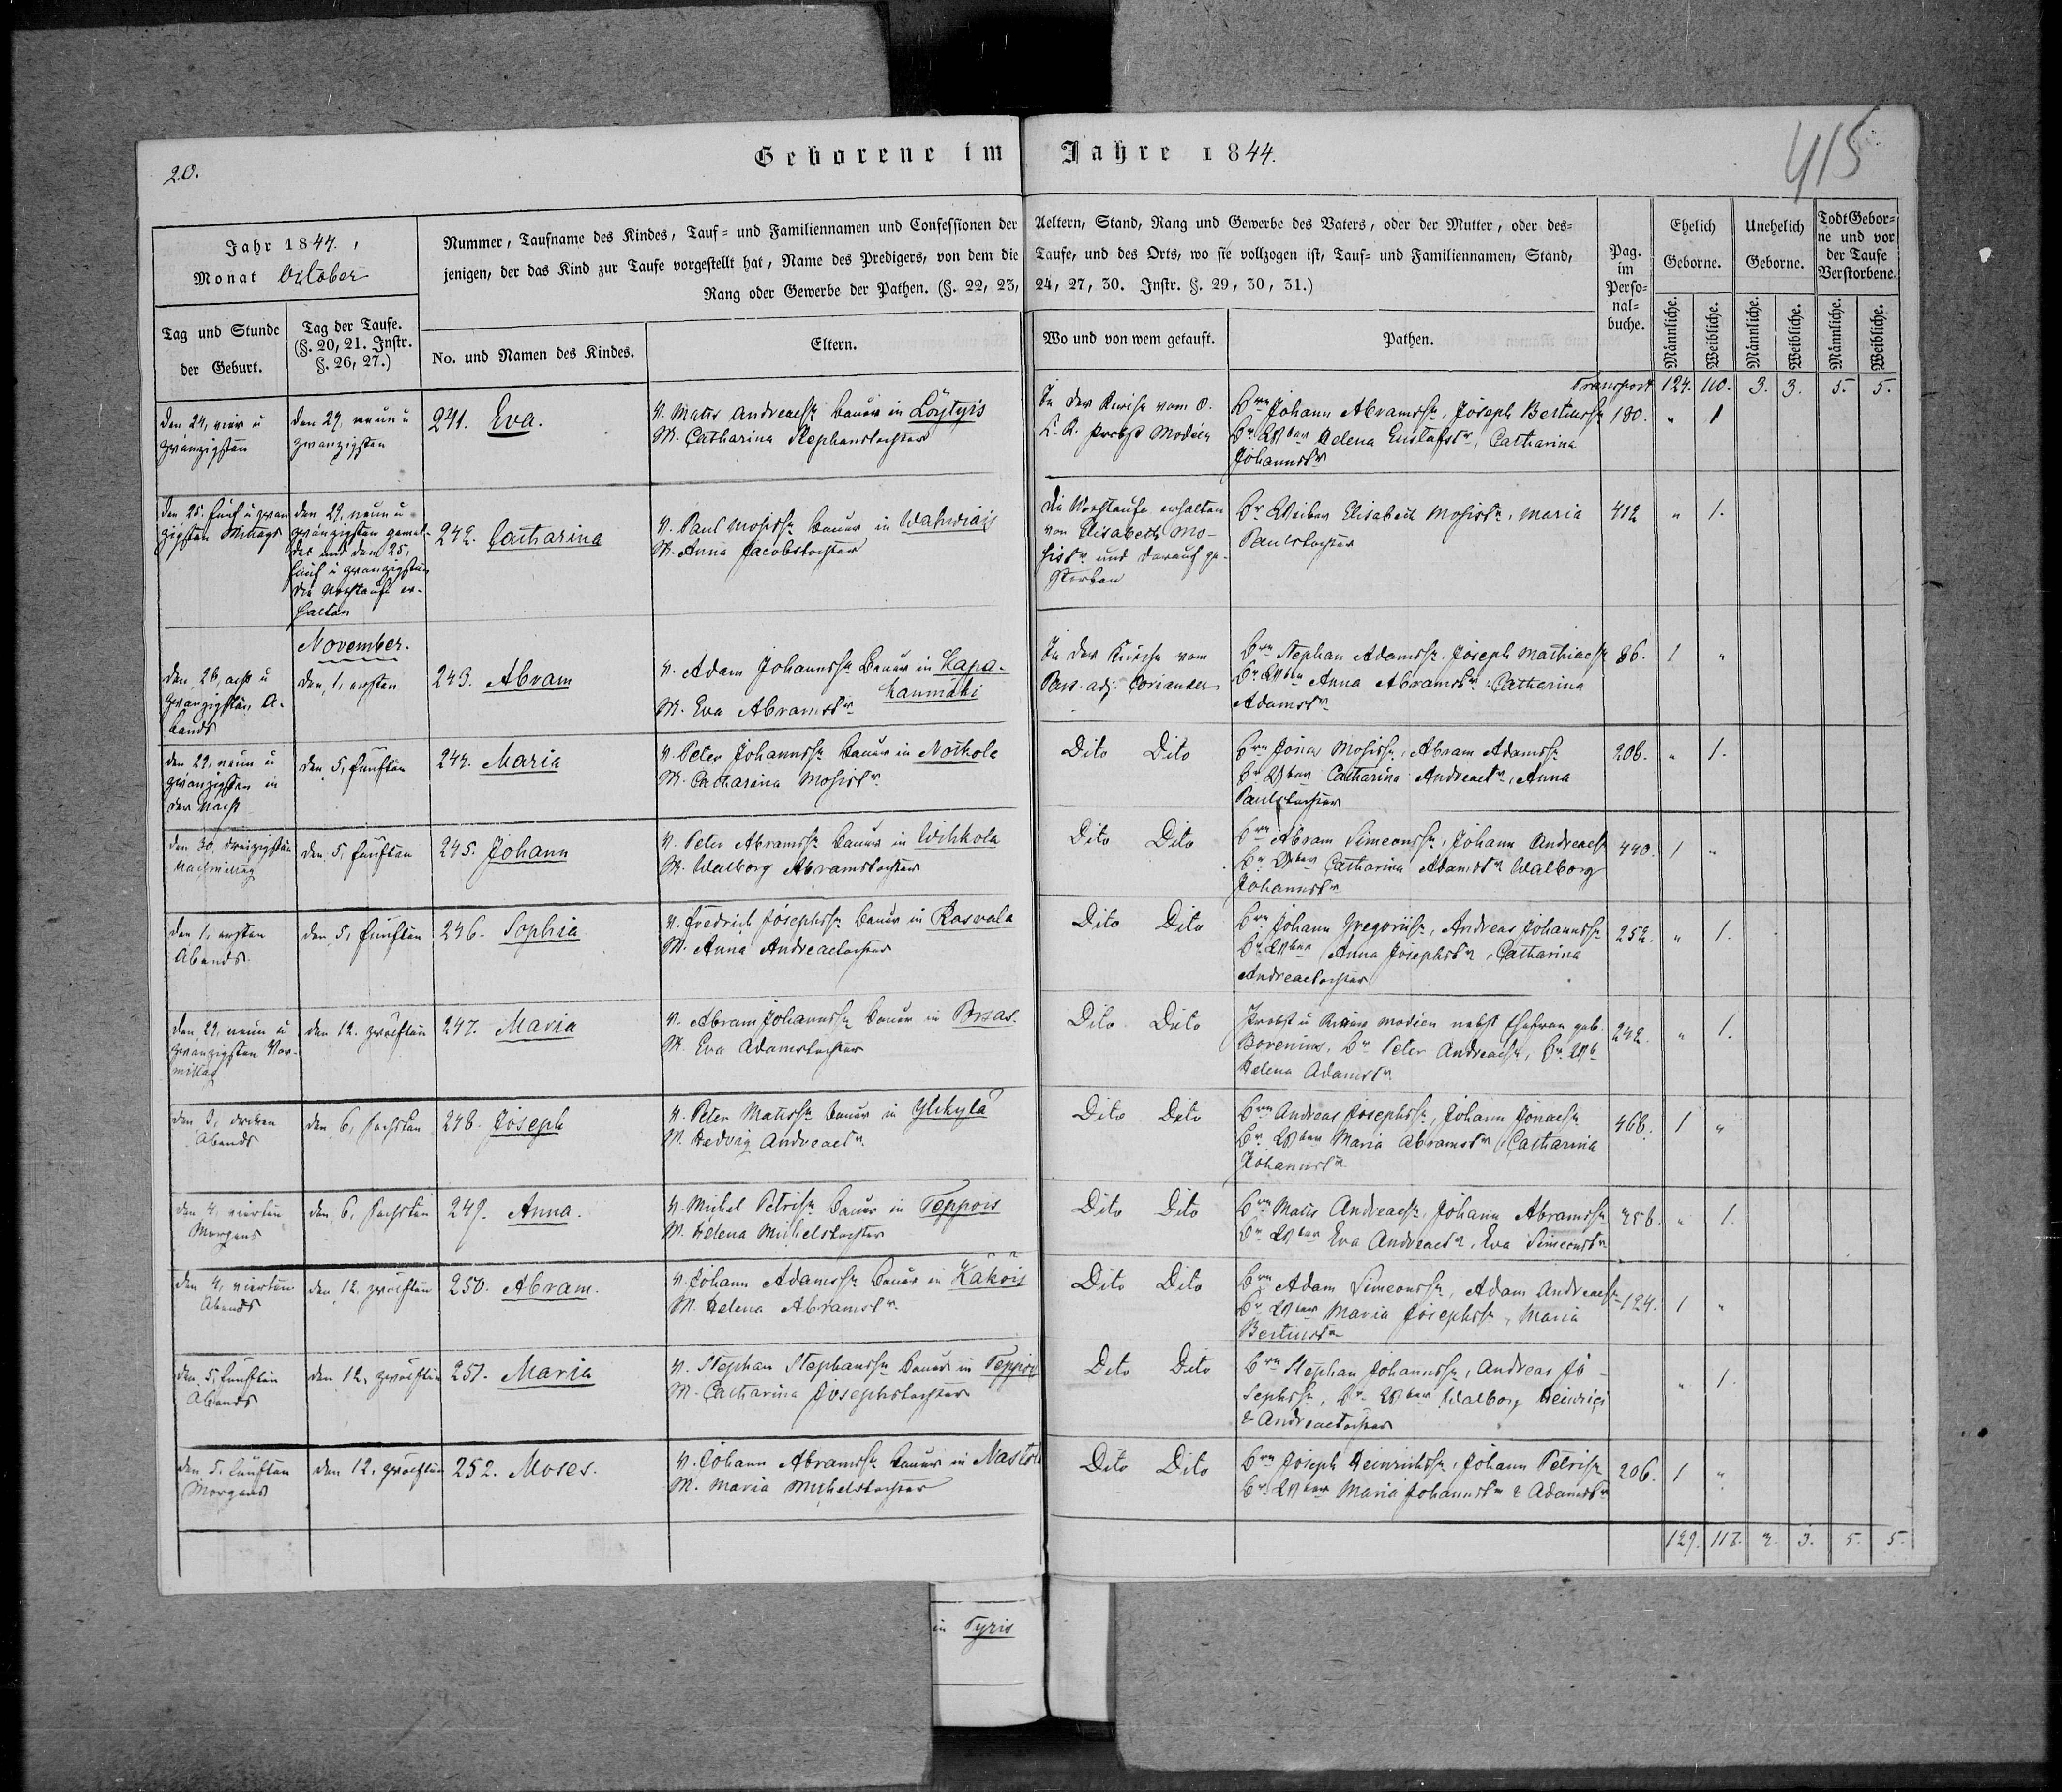 20.
Geborene im Jahre 1844.
415
Jahr 1844.
Monat October
Nummer, Taufname des Kindes, Tauf- und Familiennamen und Confessionen der Aeltern, Stand, Rang und Gewerbe des Vaters, oder der Mutter, oder des-
jenigen, der das Kind zur Taufe vorgestellt hat, Name des Predigers, von dem die Taufe, und des Orts, wo sie vollzogen ist, Tauf- und Familiennamen, Stand,
Rang oder Gewerbe der Pathen. (§. 22, 23, 24, 27, 30. Instr. §. 29, 30, 31.)
Tag und Stunde
der Geburt.
Tag der Taufe.
(§. 20, 21. Instr.
§. 26, 27.)
No. und Namen des Kindes.
Eltern.
Wo und von wem getauft.
Pathen.
Pag.
im
Perso-
nal-
buche.
Ehelich
Geborne.
Unehelich
Geborne.
Todt Gebor-
ne und vor
der Taufe
Verstorbene
Männliche.
Weibliche.
Männliche.
Weibliche.
Männliche.
Weibliche.
Transport 124. 110. 3. 3. 5. 5.
den 24, vier u
zwanzigsten
den 29. neun u
zwanzigsten
241. Eva.
V. Matts Andreaess Bauer in Löytyis
M. Catharina Stephanstochter
In der Kirche vom O.
Probst Modeen
Johann Abramss, Joseph Bertilss
Helena Gustafst, Catharina
Johannst
180. " 1
den 25. fünf u zwan
zigsten Mittags
den 29. neun u
zwanzigsten gemel-
det und den 25,
fünf u zwanzigsten
die Nothtaufe er-
halten
242. Catharina
V. Paul Mosiss Bauer in
M. Anna Jacobstochter
Die Nothtaufe erhalten
von Elisabeth Mo-
sist und darauf ge-
storben
Weiber Elisabeth Mosist, Maria
Paulstochter
412 " 1.
November.
den 26, sechs u
zwanzigsten A-
bends
den 1, ersten
243. Abram
V. Adam Johannss Bauer in Kapa-
kanmäki
M. Eva Abramst
In der Kirche vom
Past. adj. Coriander
Stephan Adamss, Joseph Mathiaess
Anna Abramst, Catharina
Adamst
86. 1 "
den 29, neun u
zwanzigsten in
der Nacht
den 5, fünften
244. Maria
V. Peter Johannss Bauer in Notkola
M. Catharina Mosist
Dito Dito
Jonas Mosiss, Abram Adamss
Catharina Andreaet, Anna
Paulstochter
206. " 1.
den 30, dreizigsten
Nachmittag
den 5, fünften
245. Johann
V. Peter Abramss Bauer in Wihkola
M. Walborg Abramstochter
Dito Dito
Abram Simeonss, Johann Andreaess
Catharina Adamst Walborg
Johannst
440. 1 "
den 1, ersten
Abends
den 5, fünften
246. Sophia
V. Friedrich Josephss Bauer in Rasvala
M. Anna Andreaetochter
Dito Dito
Johann Gregoriis, Andreas Johannss
Anna Josephst, Catharina
Andreaetochter
252. " 1.
den 29, neun u
zwanzigsten Vor-
mittag
den 12. zwölften
247. Maria
V. Abram Johannss Bauer in
M. Eva Adamstochter
Dito Dito
Probst u Modeen nebst Ehefrau geb.
Borenius, Peter Andreaess,
Helena Adamst
242. " 1.
den 3, dritten
Abends
den 6, sechsten
248. Joseph
V. Peter Matss Bauer in Ylikylä
M. Hedvig Andreaet
Dito Dito
Andreas Josephss, Johann Jonaess
Maria Abramst, Catharina
Johannst
468. 1 "
den 4, vierten
Morgens
den 6, sechsten
249. Anna.
V. Michel Petriss Bauer in Teppois
M. Helena Michelstochter
Dito Dito
Matts Andreaess, Johann Abramss
Eva Andreaet, Eva Simeonst
" 1.
den 4, vierten
Abends
den 12. zwölften
250. Abram.
V. Johann Adamss Bauer in Käköis
M. Helena Abramst
Dito Dito
Adam Simeonss, Adam Andreaess
Maria Josephss, Maria
Bertilst
124. 1 "
den 5, fünften
Abends
den 12, zwölften
251. Maria
V. Stephan Stephanss Bauer in Teppois
M. Catharina Josephstochter
Dito Dito
Stephan Johannss, Andreas Jo-
sephss, Walborg Heinrici
& Andreaetochter
" 1.
den 5, fünften
Morgens
den 12. zwölften
252. Moses.
V. Johann Abramss Bauer in
M. Maria Michelstochter
Dito Dito
Joseph Heinrichss, Johann Petriss
Maria Johannst & Adamst
206. 1 "
129. 117. 3. 3. 5. 5.
in Tyris